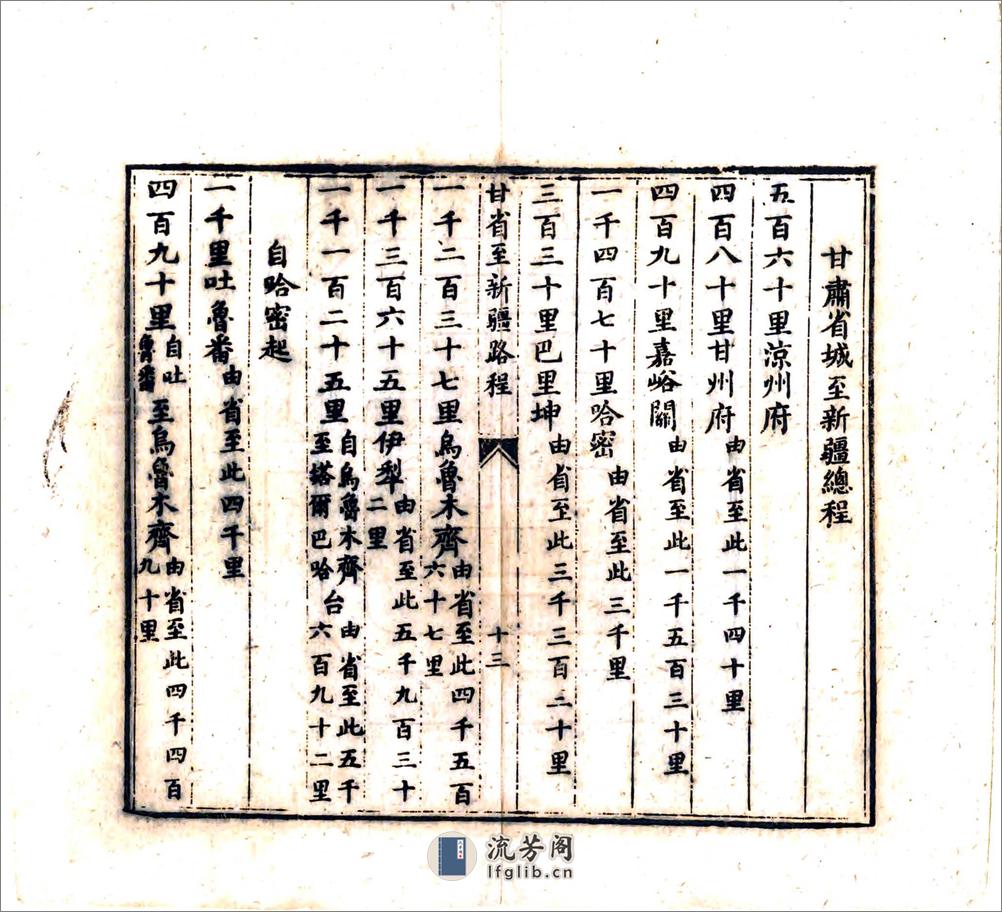 甘肅省城至新疆總程
五百六十里涼州府
四百八十里甘州府由省至此一千四十里
四百九十里嘉峪關由省至此一千五百三十里
一千四百七十里哈密由省至此三千里
三百三十里巴里坤由省至此三千三百三十里
甘省至新疆路程 十三
一千二百三十七里烏魯木齊由省至此四千五百六十七里
一千三百六十五里伊犁由省至此五千九百三十二里
一千一百二十五里自烏魯木齊至塔爾巴哈台由省至此五千六百九十二里
自哈密起
一千里吐魯番由省至此四千里
四百九十里自吐魯番至烏魯木齊由省至此四千四百九十里
流芳阁
lfglib.cn